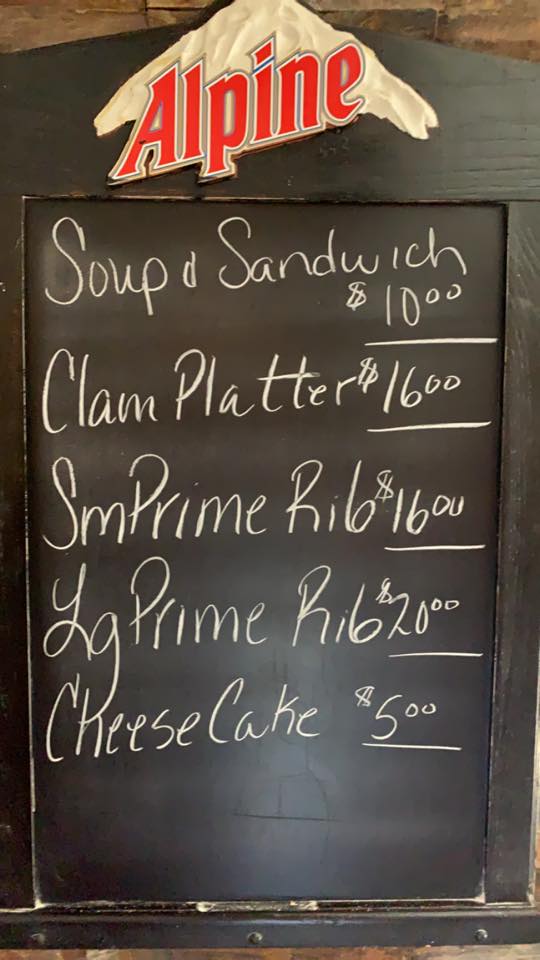 Alpine
Soup & Sandwich
$ 10.00
Clam Platter $16.00
Sm Prime Rib $16.00
Lg Prime Rib $20.00
Cheese Cake $5.00